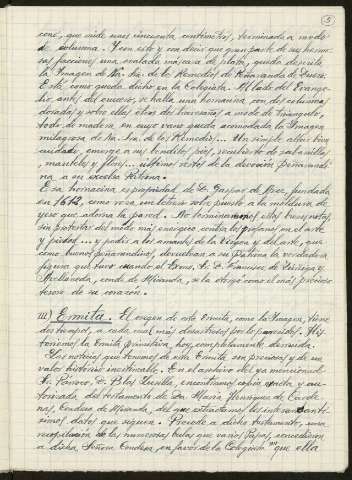 5
cone, que mide unos cincuenta centímetros, terminada a modo
de columna. Y con esto y con decir que gran parte de sus hermo-
sas facciones una ovalada máscara de plata, queda descrita
la Imagen de Ntra. Sra. de los Remedios de Peñaranda de Duero.
Está como queda dicho en la Colegiata. Al lado del Evange-
lio, antes del crucero, se halla una hornacina con dos columnas
doradas y sobre ellas otras dos travesaños a modo de triángulo,
todo de madera en cuyo vano queda acomodada la Imagen
milagrosa de Ntra. Sra. de los Remedios... Un simple altar bien
cuidado, emerge a sus benditos pies, recubierto de sabanilla
, manteles y flores... últimos restos de la devoción peñarandi-
na a su excelsa Patrona.
Esa hornacina es propiedad de D. Gaspar de 
en 1612, como reza un letrero sobre puesto a la moldura de
yeso que adorna la pared. No terminaremos ellas breves notas,
sin protestar del modo más enérgico contra los profanos en el arte
y piedad... y pedir a los amantes de la Virgen y del arte, que
como buenos peñarandinos, devuelvan a su Patrona la verdadera
figura que tuvo cuando el Excmo. Sr. D. Francisco de Zúñiga y
Avellaneda, conde de Miranda, se la otorgó como el más precioso
tesoro de su corazón.
III) Ermita. El origen de esta Ermita, como la Imagen, tiene
dos tiempos, a cada cual más desastrosos por lo parecidos. His-
toriemos la Ermita primitiva, hoy completamente derruida.
Las noticias que tenemos de esta Ermita son preciosas y de un
valor histórico inestimable. En el archivo del ya mencionado
Sr. Párroco, D. Blas 
, encontramos copia exacta y au-
torizada del testamento de Dª. María Henríquez de Cárde-
nas, Condesa de Miranda, del que extractamos los interesantí-
simos datos que siguen. Precede a dicho testamento, una
recopilación de las numerosas bulas que varios Papas, concedieron
a dicha Señora Condesa, en favor de la Colegiata "que ella